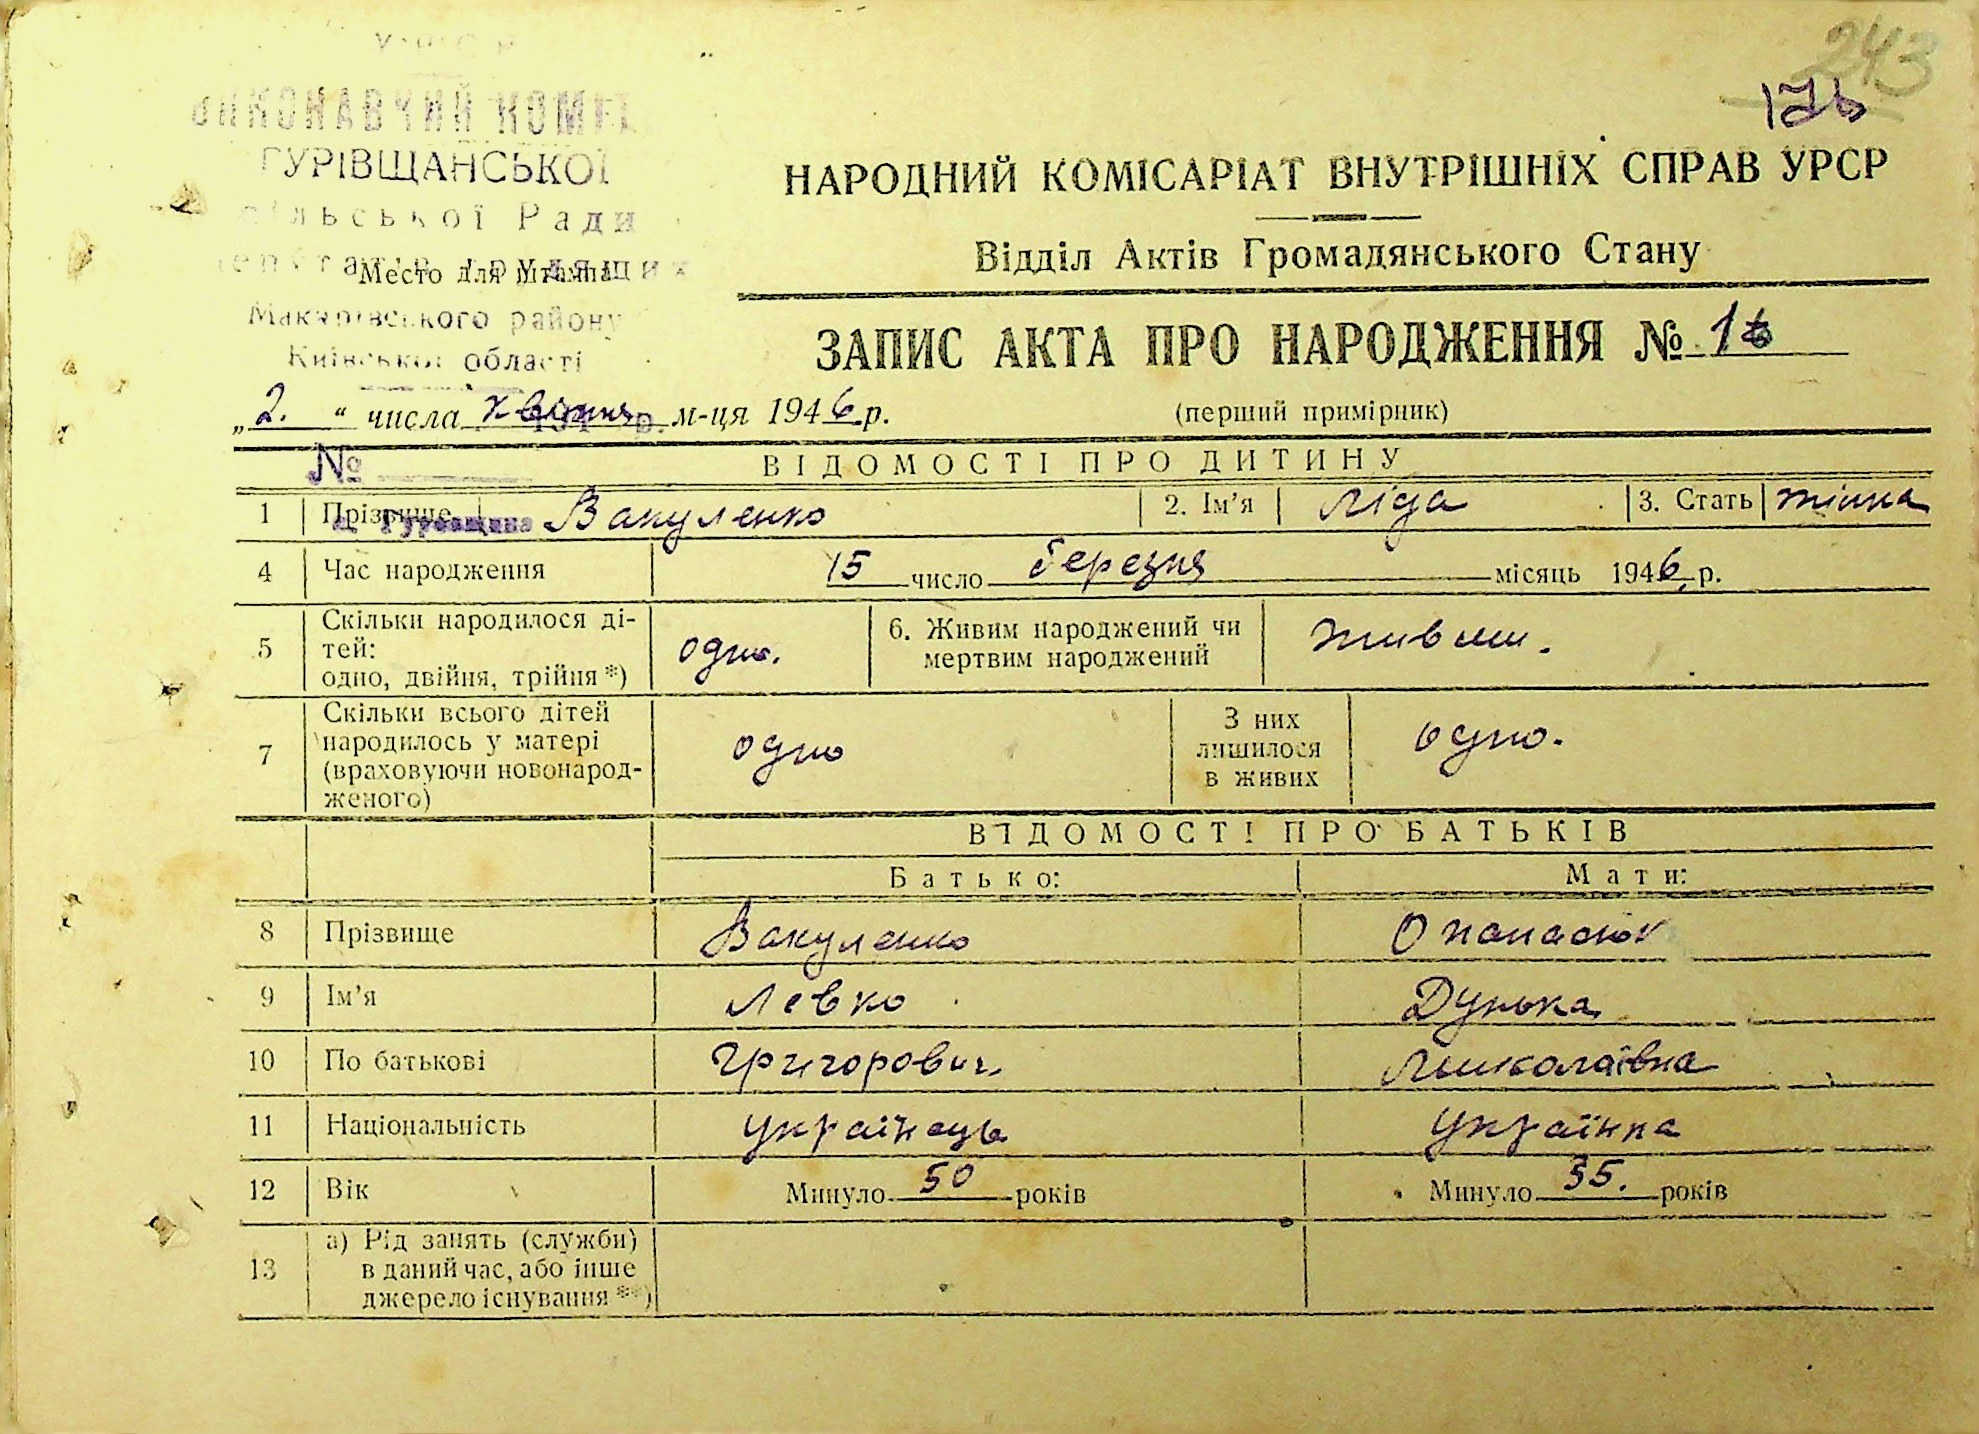 243
УРСР
ВИКОНАВЧИЙ КОМІТ
ГУРІВЩАНСЬКОЇ
сільської Ради
депутатів трудящих
Место для штампа
Макарівського району
Київської області
НАРОДНИЙ КОМІСАРІАТ ВНУТРІШНІХ СПРАВ УРСР
Відділ Актів Громадянського Стану
ЗАПИС АКТА ПРО НАРОДЖЕННЯ №
„2.“ числа квітня м-ця 1946 р.
(перший примірник)
№
ВІДОМОСТІ ПРО ДИТИНУ
1 Прізвище Вакуленко 2. Ім'я Ліда 3. Стать жінка
с. Гуровщина
4 Час народження 15 число березня місяць 1946 р.
5 Скільки народилося ді-
тей:
одно, двійня, трійня *) одно. 6. Живим народжений чи
мертвим народжений живим.
7 Скільки всього дітей
народилось у матері
(враховуючи новонарод-
женого) одно З них
лишилося
в живих одно.
ВІДОМОСТІ ПРО БАТЬКІВ
Батько: Мати:
8 Прізвище Вакуленко Опанасюк
9 Ім'я Левко Дунька
10 По батькові Григорович Миколаївна
11 Національність Українець Українка
12 Вік Минуло 50 років Минуло 35. років
13 а) Рід занять (служби)
в даний час, або інше
джерело існування **)